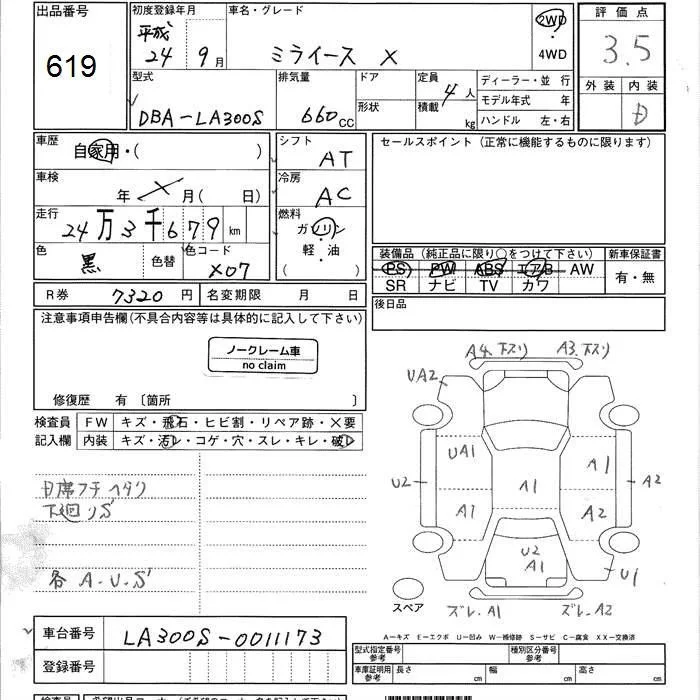 出品番号
619
初度登録年月
平成
24 9月
車名・グレード
ミライース X
2WD
4WD
評価点
3.5
外装 内装
D
型式
DBA-LA300S
排気量
660 CC
ドア
形状
定員
4人
積載
kg
ディーラー・並 行
モデル年式 年
ハンドル 左・右
車歴
自家用・( )
シフト
AT
セールスポイント (正常に機能するものに限ります)
車検
年 X 月( 日)
冷房
AC
走行
24万3千679 km
燃料
ガソリン
軽・油
( )
色
黒
色替
色コード
X07
装備品 (純正品に限り○をつけて下さい)
新車保証書
PS PW ABS エアB AW
SR ナビ TV カワ
有・無
R券 7320 円
名変期限 月 日
後日品
注意事項申告欄(不具合内容等は具体的に記入して下さい)
ノークレーム車
no claim
修復歴 有 〔箇所 〕
検査員
記入欄
FW キズ・飛石・ヒビ割・リペア跡・X要
内装 キズ・汚レ・コゲ・穴・スレ・キレ・破レ
下廻りS
各 A.U.S
A4.下スリ A3.下スリ
UA2
UA1
A1
U2
A1
A2
A1
A2
U2
A1
U1
スペア
ズレ.A1 ズレ.A2
A―キズ E―エクボ U―凹み W―補修跡 S―サビ C―腐食 XX―交換済
車台番号 LA300S-0011173
登録番号
型式指定番号
参考
種別区分番号
参考
車庫証明用
参考
長さ cm 幅 cm 高さ cm